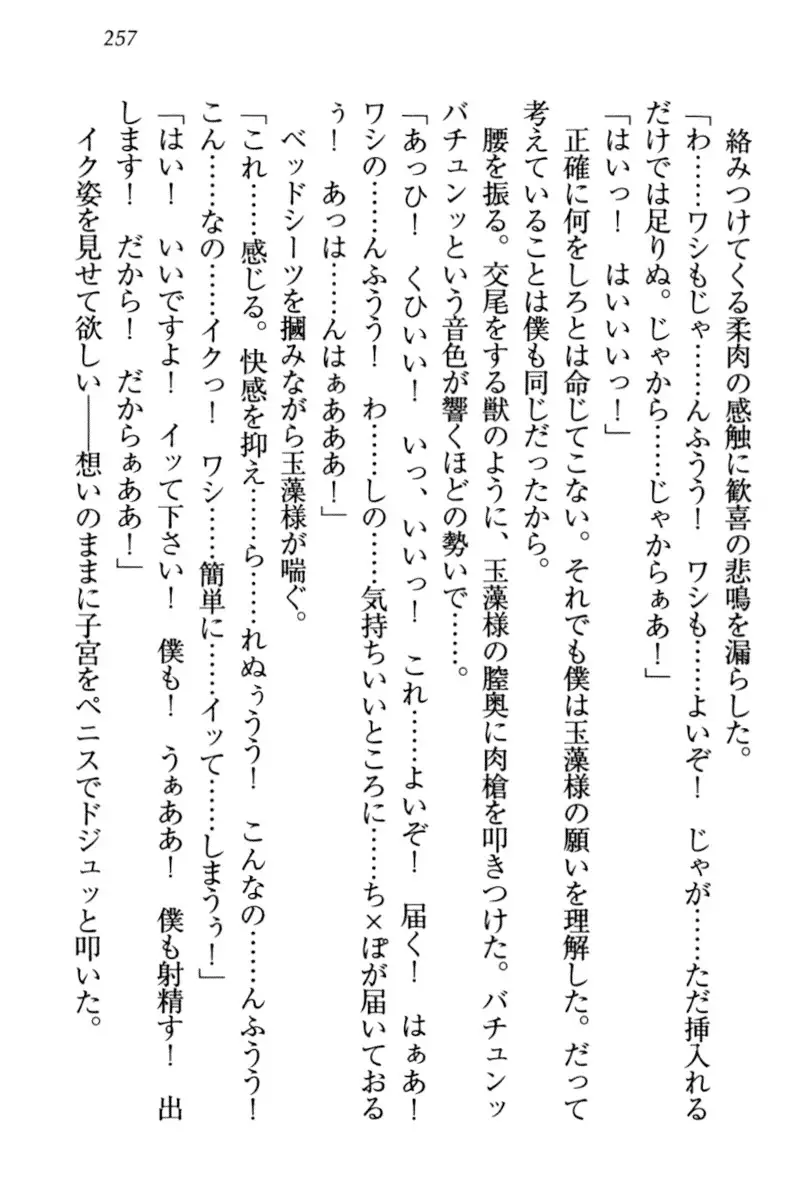 257
絡みつけてくる柔肉の感触に歓喜の悲鳴を漏らした。
「わ……ワシもじゃ……んふうう！　ワシも……よいぞ！　じゃが……ただ挿入れる
だけでは足りぬ。じゃから……じゃからぁあ！」
「はいっ！　はいいいっ！」
正確に何をしろとは命じてこない。それでも僕は玉藻様の願いを理解した。だって
考えていることは僕も同じだったから。
腰を振る。交尾をする獣のように、玉藻様の膣奥に肉槍を叩きつけた。バチュンッ
バチュンッという音色が響くほどの勢いで……。
「あっひ！　くひいい！　いっ、いいっ！　これ……よいぞ！　届く！　はぁあ！
ワシの……んふうう！　わ……しの……気持ちいいところに……ち×ぽが届いておる
ぅ！　あっは……んはぁあああ！」
ベッドシーツを摑みながら玉藻様が喘ぐ。
「これ……感じる。快感を抑え……ら……れぬぅうう！　こんなの……んふうう！
こん……なの……イクっ！　ワシ……簡単に……イッて……しまうぅ！」
「はい！　いいですよ！　イッて下さい！　僕も！　うぁああ！　僕も射精す！　出
します！　だから！　だからぁああ！」
イク姿を見せて欲しい――想いのままに子宮をペニスでドジュッと叩いた。